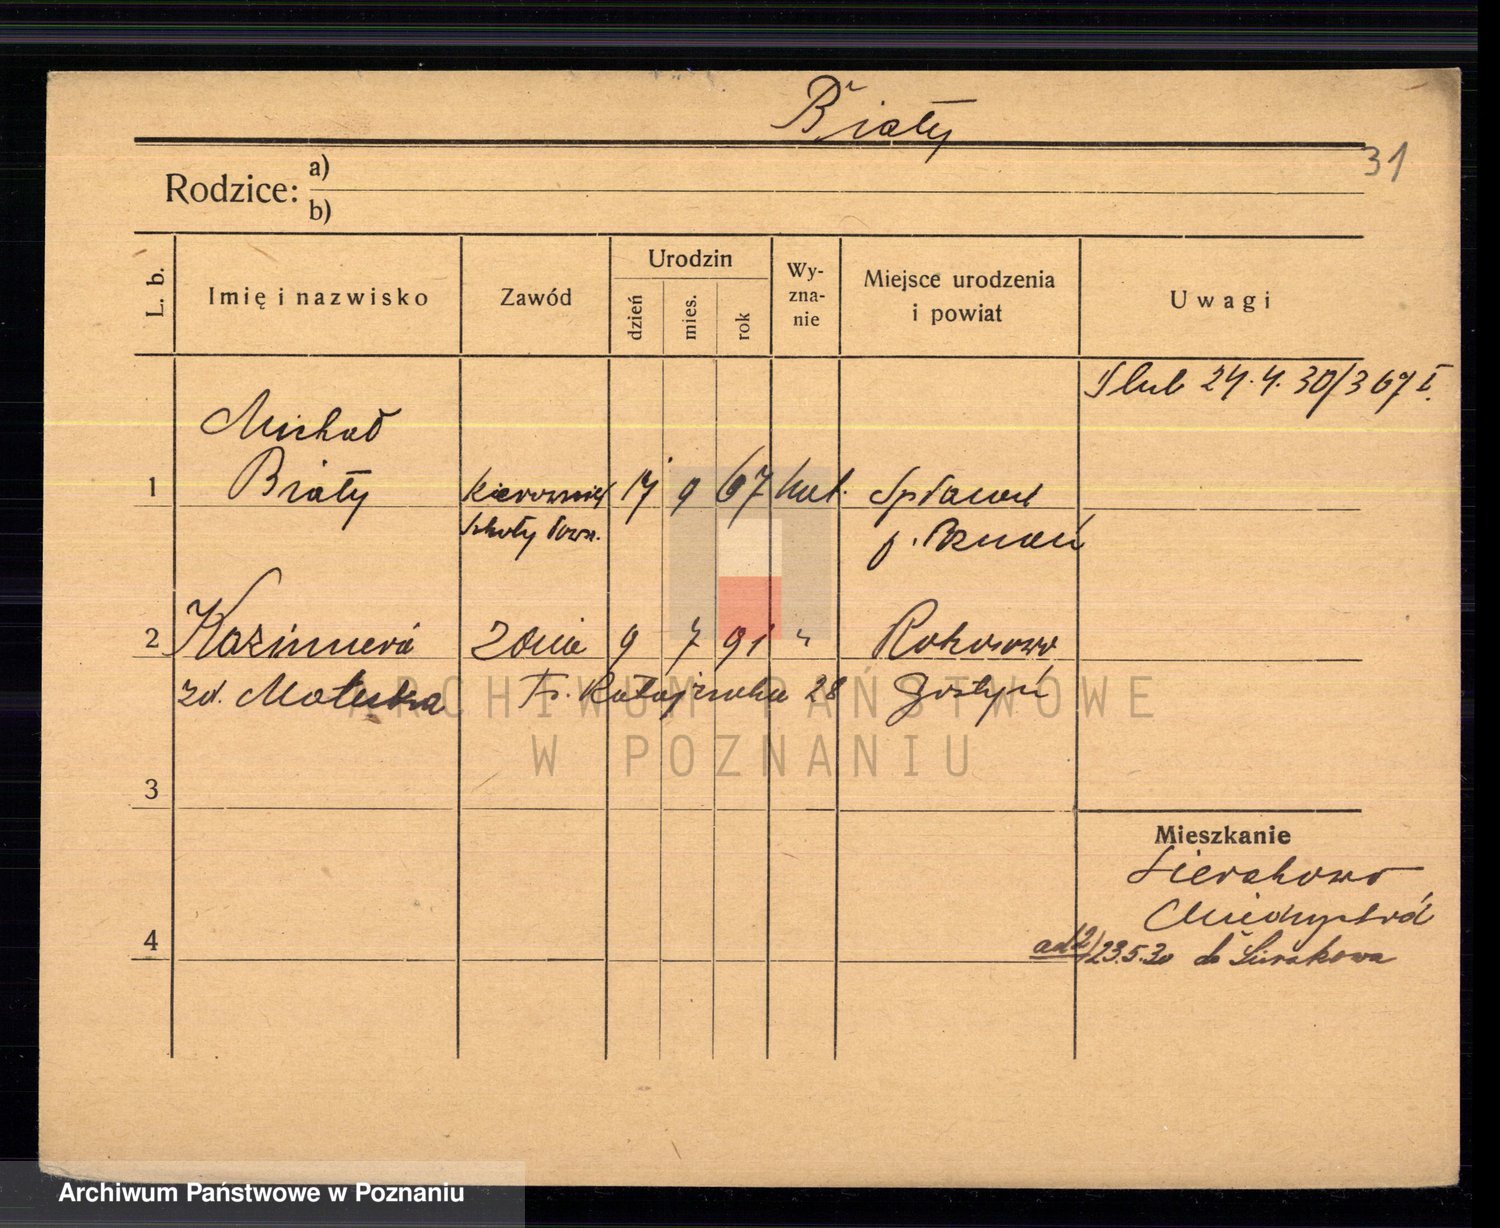 Biały
31
Rodzice: a)
b)
L. b.
Imię i nazwisko
Zawód
Urodzin
dzień
mies.
rok
Wy-
zna-
nie
Miejsce urodzenia
i powiat
Uwagi
Ślub 24.4.30/367 I.
Michał
1 Biały kierownik 17 9 67 kat. Spławie
szkoły pow. p. Poznań
2 Kazimiera żona 9 7 91 " Rokosowo
zd. Matuska Fr. Ratajczaka 28 Gostyń
3
Mieszkanie
Sierakowo
Międzychód
4
ad 2/ 23.5.30 do Sierakowa
ARCHIWUM PAŃSTWOWE
W POZNANIU
Archiwum Państwowe w Poznaniu